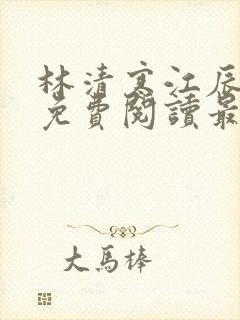 林清寒江辰
免费閱讀最
大馬棒